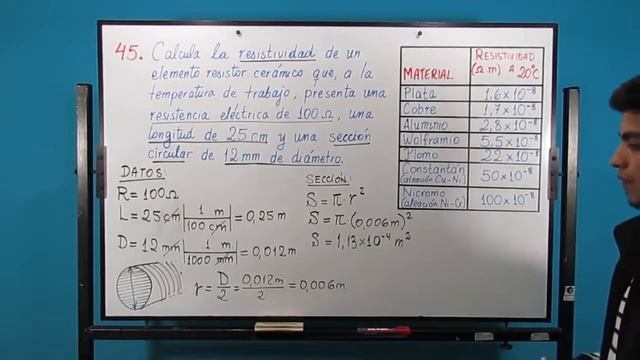 45. Calcula la resistividad de un
elemento resistor cerámico que, a la
temperatura de trabajo, presenta una
resistencia eléctrica de 100 Ω, una
longitud de 25 cm y una sección
circular de 12 mm de diámetro.
DATOS:
R = 100 Ω
L = 25 cm | 1 m / 100 cm | = 0,25 m
D = 12 mm | 1 m / 1000 mm | = 0,012 m
r = D/2 = 0,012 m / 2 = 0,006 m
SECCIÓN:
S = π · r²
S = π · (0,006 m)²
S = 1,13 × 10⁻⁴ m²
MATERIAL RESISTIVIDAD (Ω m) A 20°C
Plata 1,6 × 10⁻⁸
Cobre 1,7 × 10⁻⁸
Aluminio 2,8 × 10⁻⁸
Wolframio 5,5 × 10⁻⁸
Plomo 22 × 10⁻⁸
Constantán (aleación Cu-Ni) 50 × 10⁻⁸
Nicromo (aleación Ni-Cr) 100 × 10⁻⁸